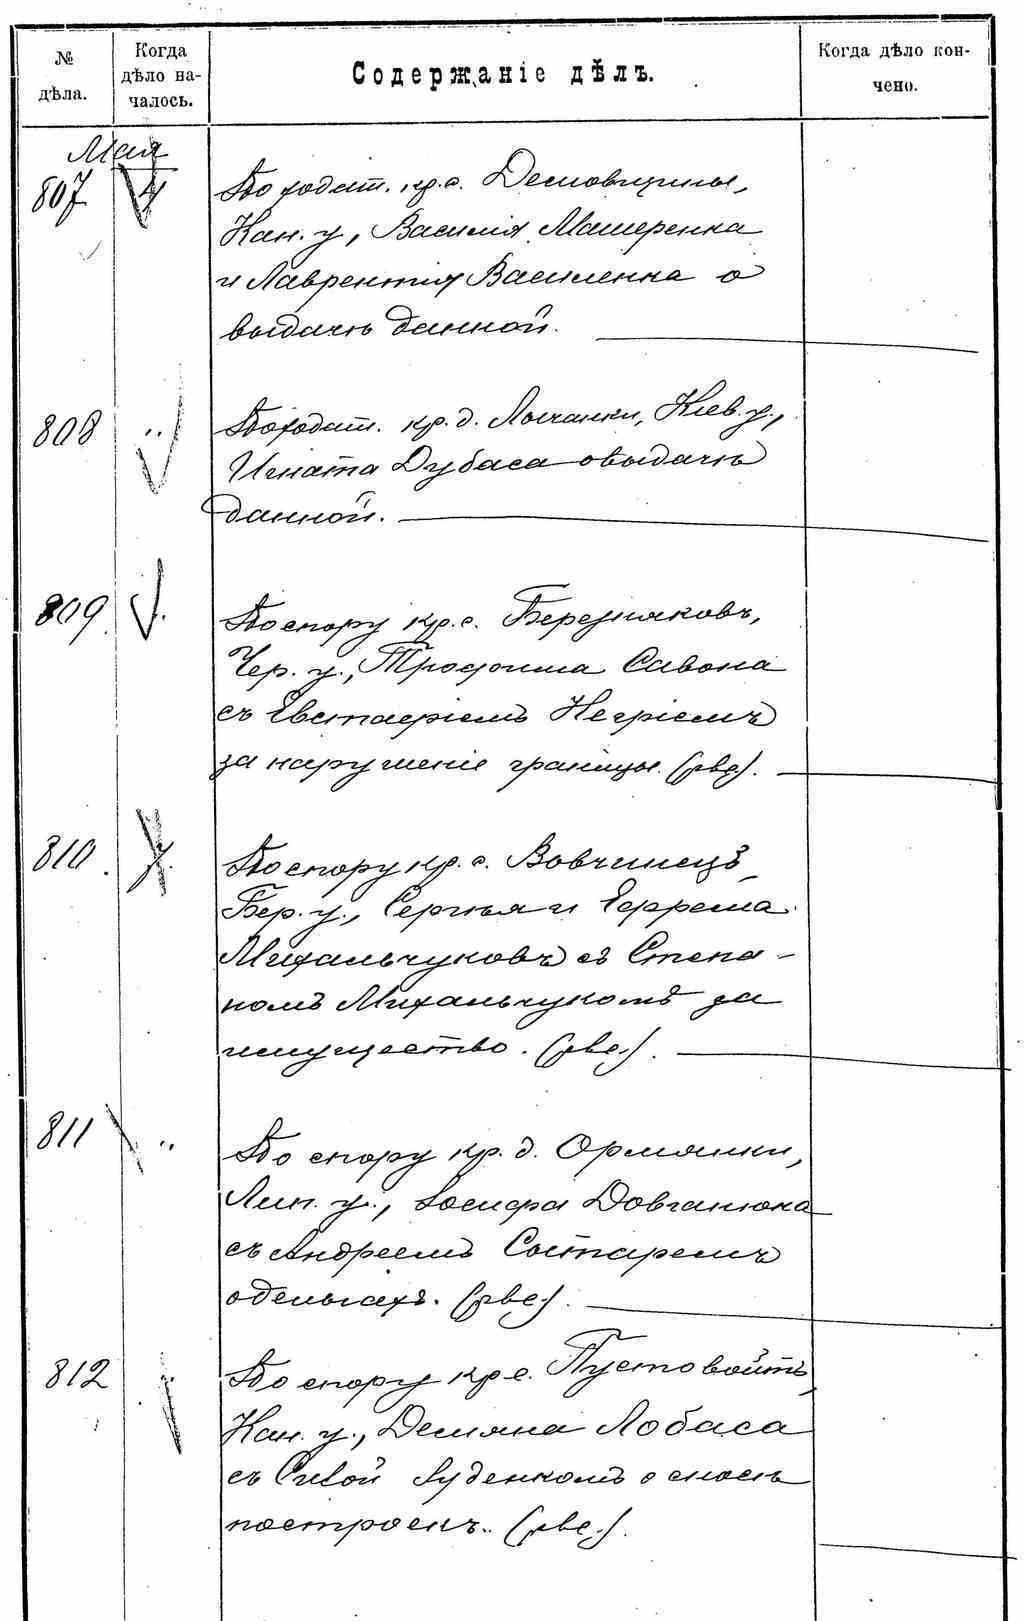 № дѣла.
Когда дѣло на-
чалось.
Содержаніе дѣлъ.
Когда дѣло кон-
чено.
Мая
807 4 По ходат. кр. с. Демовщины,
Кан. у., Василія Машеренка
и Лаврентія Василенка о
выдачѣ данной.
808 " По ходат. кр. д. Лычанки, Кіев. у.,
Игната Дубаса о выдачѣ
данной.
809 По спору кр. с. Березняковъ,
Чер. у., Трофима Савона
съ Евстафіемъ Негріемъ
за нарушеніе границы. (рве).
810 По спору кр. с. Вовчинецъ,
Бер. у., Сергѣя и Ефрема
Михальчуковъ съ Степа-
номъ Михальчукомъ за
имущество. (рве.).
811 " По спору кр. д. Ормянки,
Лип. у., Іосифа Довганюка
съ Андреемъ
о деньгахъ. (рве.).
812 По спору кр. с. Пустовойтъ,
Кан. у., Демяна Лобаса
съ Савой Руденкомъ о сносѣ
построекъ. (рве.).